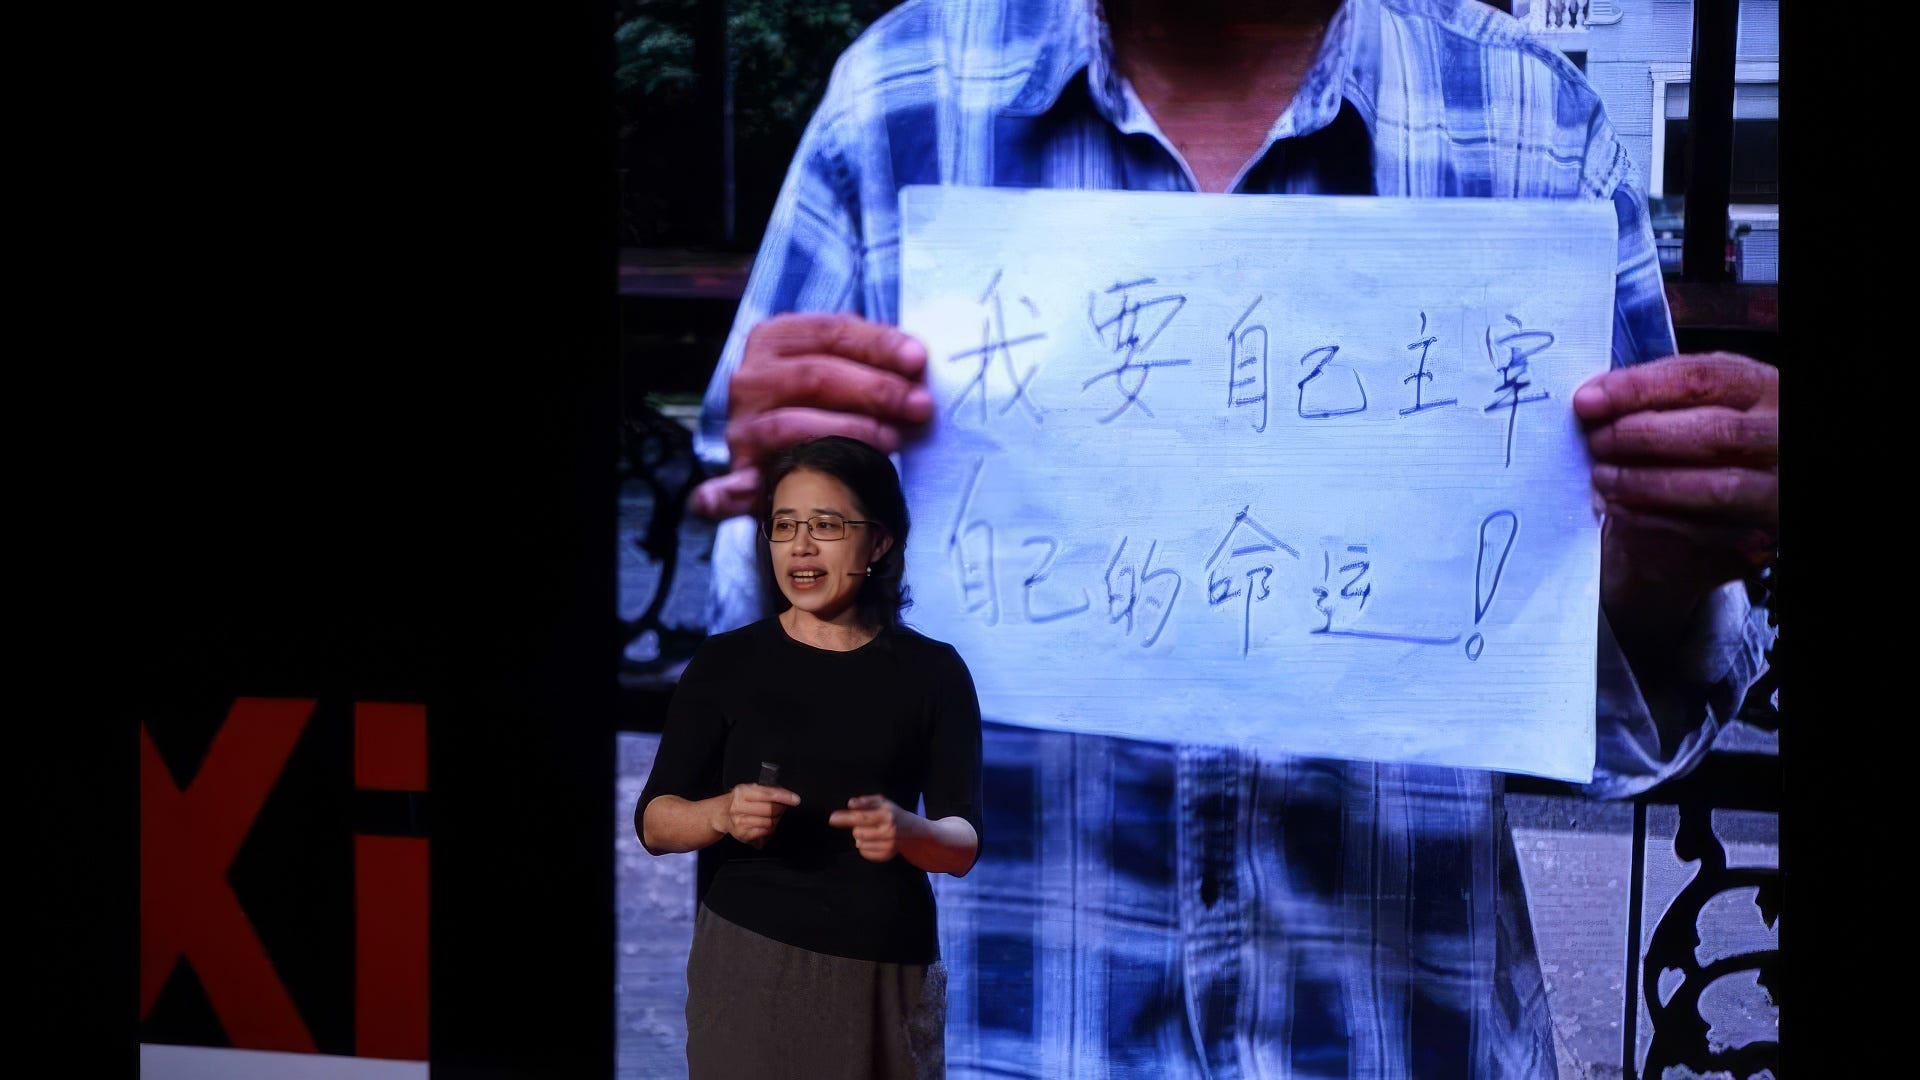 我要自己主宰
自己的命运！
Xi